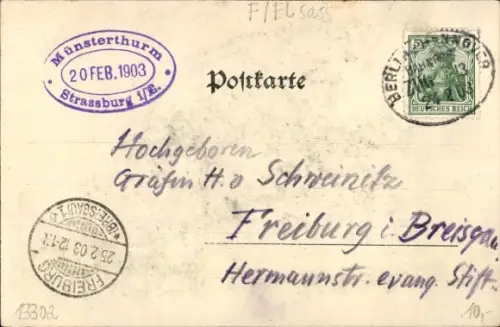 F/Elsass
Münsterthurm
20 FEB. 1903
Strassburg i/E.
Postkarte
BERLIN HANNOVER
DEUTSCHES REICH
Hochgeboren
Gräfin H. v Schweinitz
Freiburg i. Breisgau
Hermannstr. evang. Stift
FREIBURG
(BREISGAU) 1
25.2.03. 12-1
13302
10,-